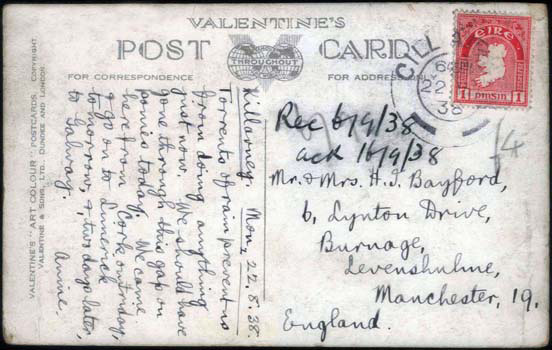 VALENTINE'S
POST CARD
THROUGHOUT
FOR CORRESPONDENCE
FOR ADDRESS ONLY
VALENTINE'S "ART COLOUR" POSTCARDS. COPYRIGHT
VALENTINE & SONS, LTD., DUNDEE AND LONDON
CILL
22
38
EIRE
1 PINGIN 1
Killarney. Mon, 22.8.38.
Torrents of rain prevent us
from doing anything
just now. We should have
gone through this gap on
ponies today. We came
here from Cork on Friday,
& go on to Limerick
tomorrow, & two days later,
to Galway.
Annie.
Rec 6/9/38
ack 16/9/38
/4
Mr. & Mrs. H. J. Bayford,
6, Lynton Drive,
Burnage,
Levenshulme,
Manchester, 19.
England.